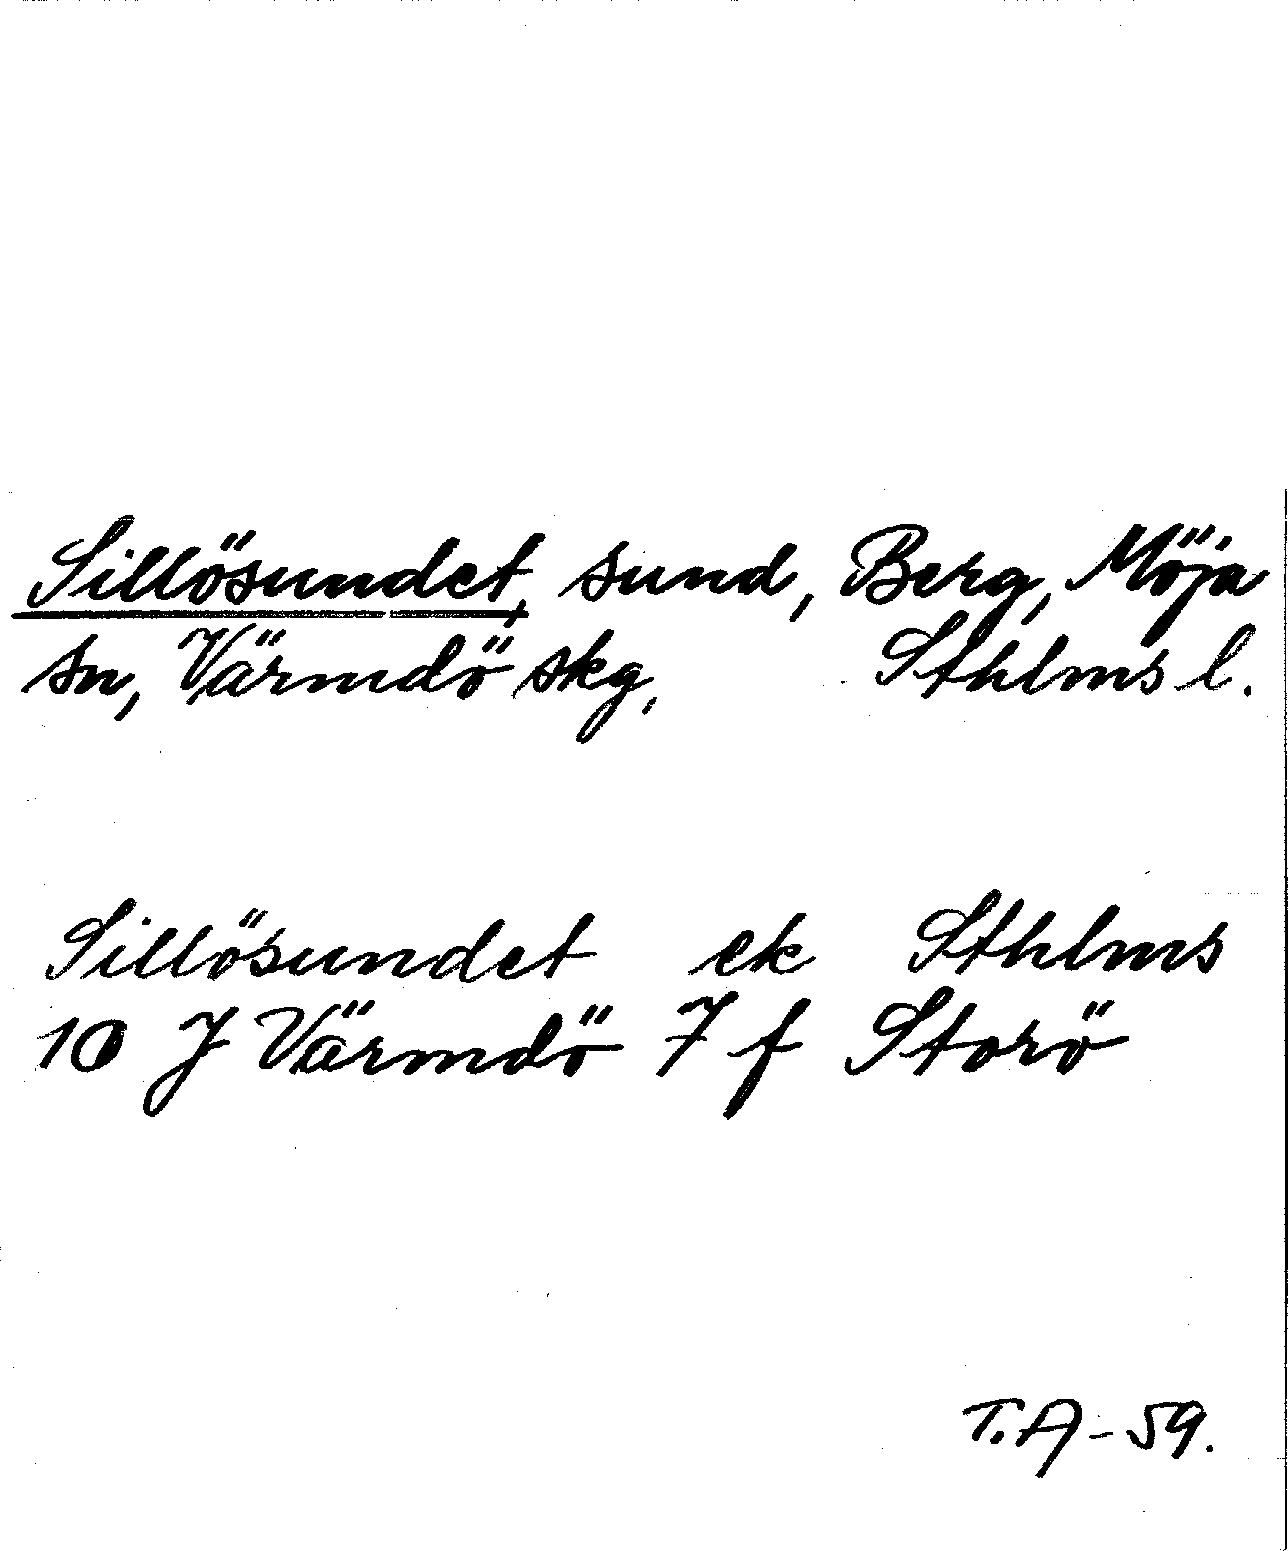 Sillösundet, sund, Berg, Möja
sn, Värmdö skg, Sthlms l.
Sillösundet ek Sthlms
10 J Värmdö 7 f Storö
T.A-59.